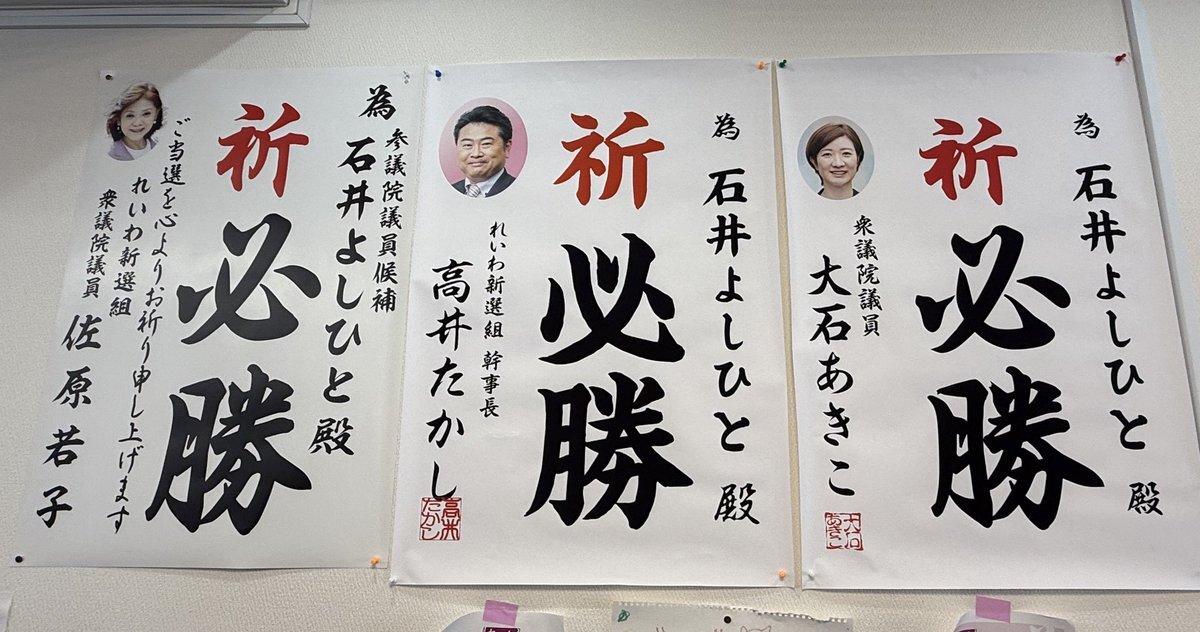 為
石井よしひと
殿
祈
必勝
衆議院議員
大石あきこ
大石
あきこ
為
石井よしひと
殿
祈
必勝
れいわ新選組 幹事長
高井たかし
高井
たかし
為
参議院議員候補
石井よしひと殿
祈
必勝
ご当選を心よりお祈り申し上げます
れいわ新選組
衆議院議員
佐原若子